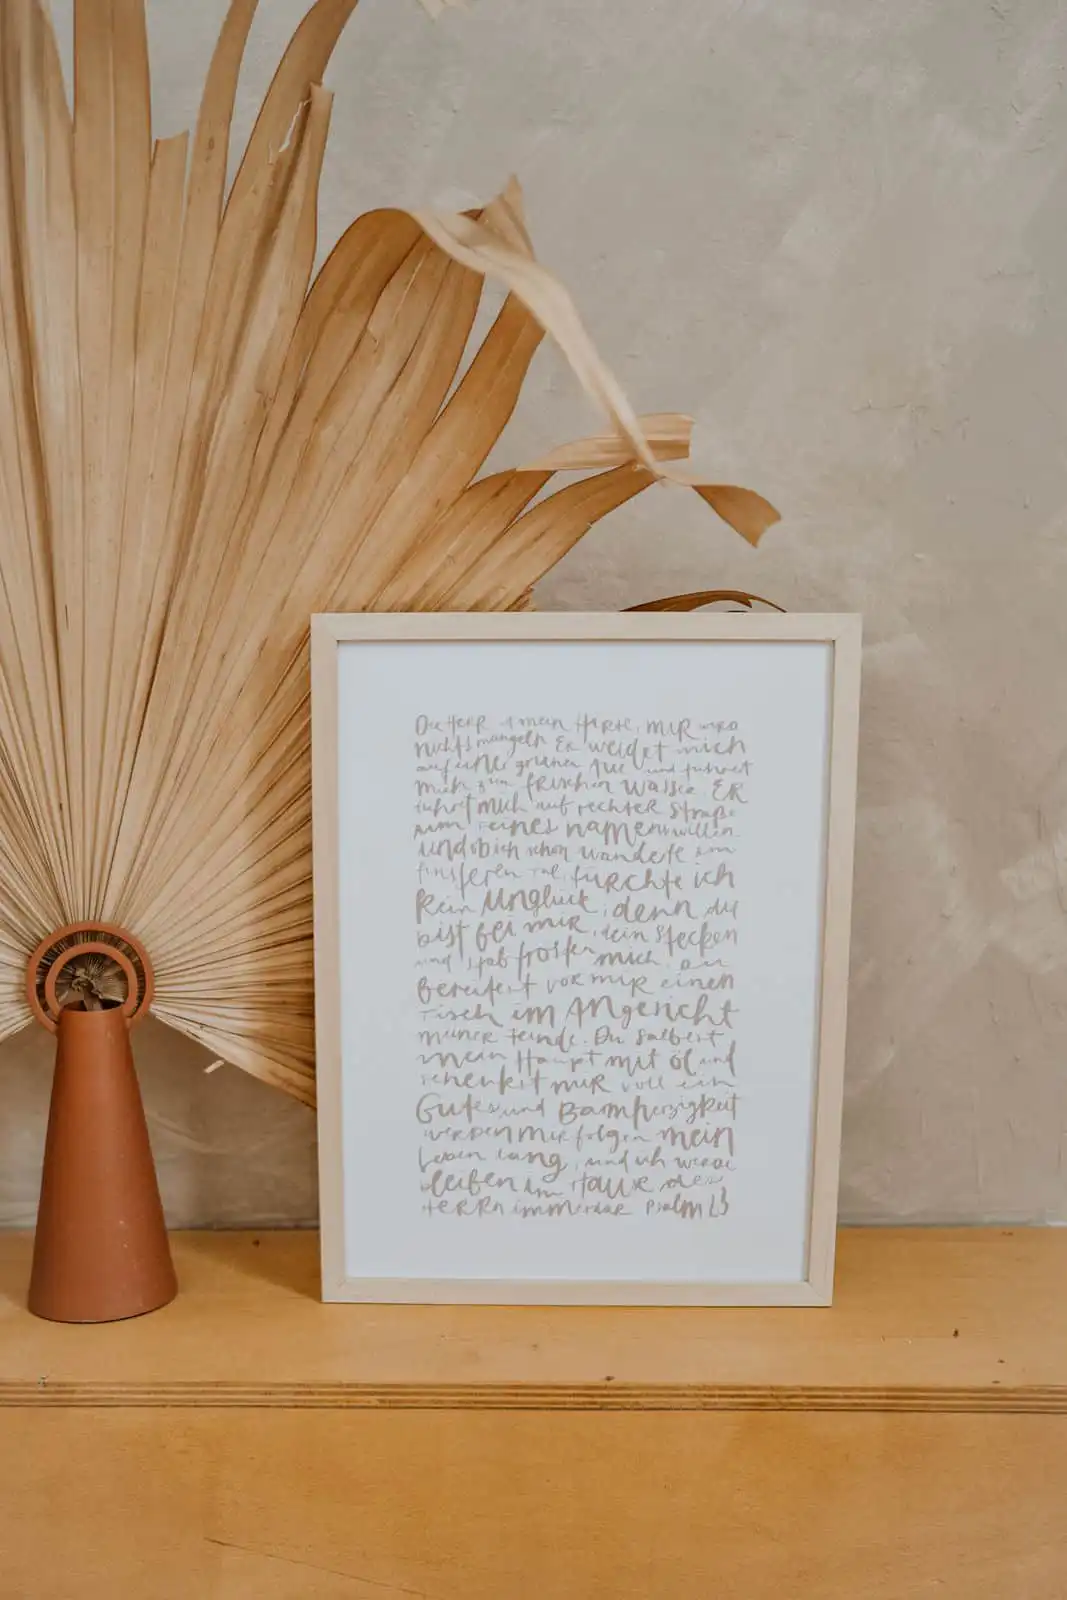 Der HERR ist mein Hirte, mir wird
nichts mangeln. Er weidet mich
auf einer grünen Aue und führet
mich zum frischen Wasser. ER
führet mich auf rechter Straße
um seines namens willen.
Und ob ich schon wanderte im
finsteren Tal, fürchte ich
kein Unglück, denn du
bist bei mir, dein Stecken
und Stab trösten mich. Du
bereitest vor mir einen
Tisch im Angesicht
meiner Feinde. Du salbest
mein Haupt mit öl und
schenkest mir voll ein
Gutes und Barmherzigkeit
werden mir folgen mein
Leben lang, und ich werde
bleiben im Hause des
HERRN immerdar Psalm 23